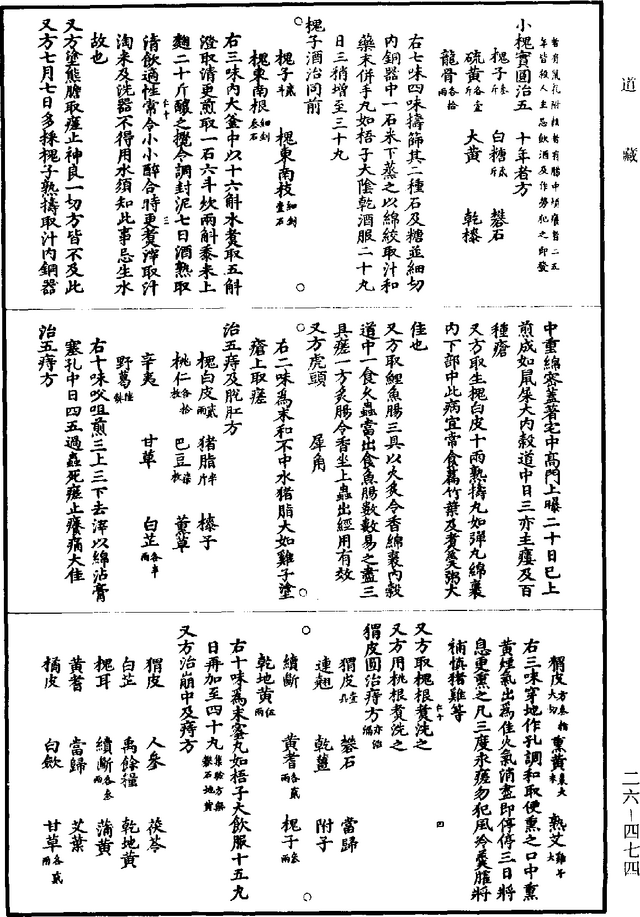 道藏
暫有鼠孔附核暫有腸中頃癢暫二五
年皆殺人主忌飲酒及作勞犯之即發
小槐實圓治五十年者方
槐子叁斤 白糖貳斤 礬石
硫黃各壹斤 大黃 乾榛
龍骨各拾兩
右七味四味擣篩其二種石及糖並細切
內銅器中一石米下蒸之以綿絞取汁和
藥末併手丸如梧子大陰乾酒服二十丸
日三稍增至三十丸
槐子酒治同前
槐子貳 槐東南枝細剉壹石
槐東南根細剉叁石
右三味內大釜中以十六斛水煑取五斛
澄取清更煎取一石六斗炊兩斛黍米上
麴二十斤釀之攪令調封泥七日酒熟取
清飲適性常令小小醉合時更煑滓取汁
淘米及洗器不得用水須知此事忌生水
故也
又方塗熊膽取瘥止神良一切方皆不及此
又方七月七日多採槐子熟擣取汁內銅器
中重綿密蓋著宅中高門上曝二十日已上
煎成如鼠屎大內穀道中日三亦主瘻及百
種瘡
又方取生槐白皮十兩熟擣丸如彈丸綿裹
內下部中此病宜常食萹竹葉及煑羹粥大
佳也
又方取鯉魚腸三具以火炙令香綿裹內穀
道中一食久蟲當出食魚腸數數易之盡三
具瘥一方炙腸令香坐上蟲出經用有效
又方虎頭 犀角
右二味爲末和不中水猪脂大如雞子塗
瘡上取瘥
治五痔及脫肛方
槐白皮貳兩 猪脂半斤 榛子
桃仁各拾枚 巴豆 薰草
辛夷 甘草 白芷各半兩
野葛
右十味㕮咀煎三上三下去滓以綿沾膏
塞孔中日四五過蟲死瘥止癢痛大佳
治五痔方
猬皮方叁指大切 熏黃棗大 熟艾雞子大
右三味穿地作孔調和取便熏之口中熏
黃煙氣出爲佳火氣消盡即停停三日將
息更熏之凡三度永瘥勿犯風冷羹臛將
補慎猪雞等
又方取槐根煑洗之
又方用桃根煑洗之
猬皮圓治痔方亦治漏
猬皮壹具 礬石 當歸
連翹 乾薑 附子
續斷 黃耆各貳兩 槐子叁兩
乾地黃伍兩
右十味爲末蜜丸如梧子大飲服十五丸
日再加至四十丸集驗方無礬石地黃
又方治崩中及痔方
猬皮 人參 茯苓
白芷 禹餘糧 乾地黃
槐耳 續斷各叁兩 蒲黃
黃耆 當歸 艾葉
橘皮 白斂 甘草各貳兩
二六—四七四